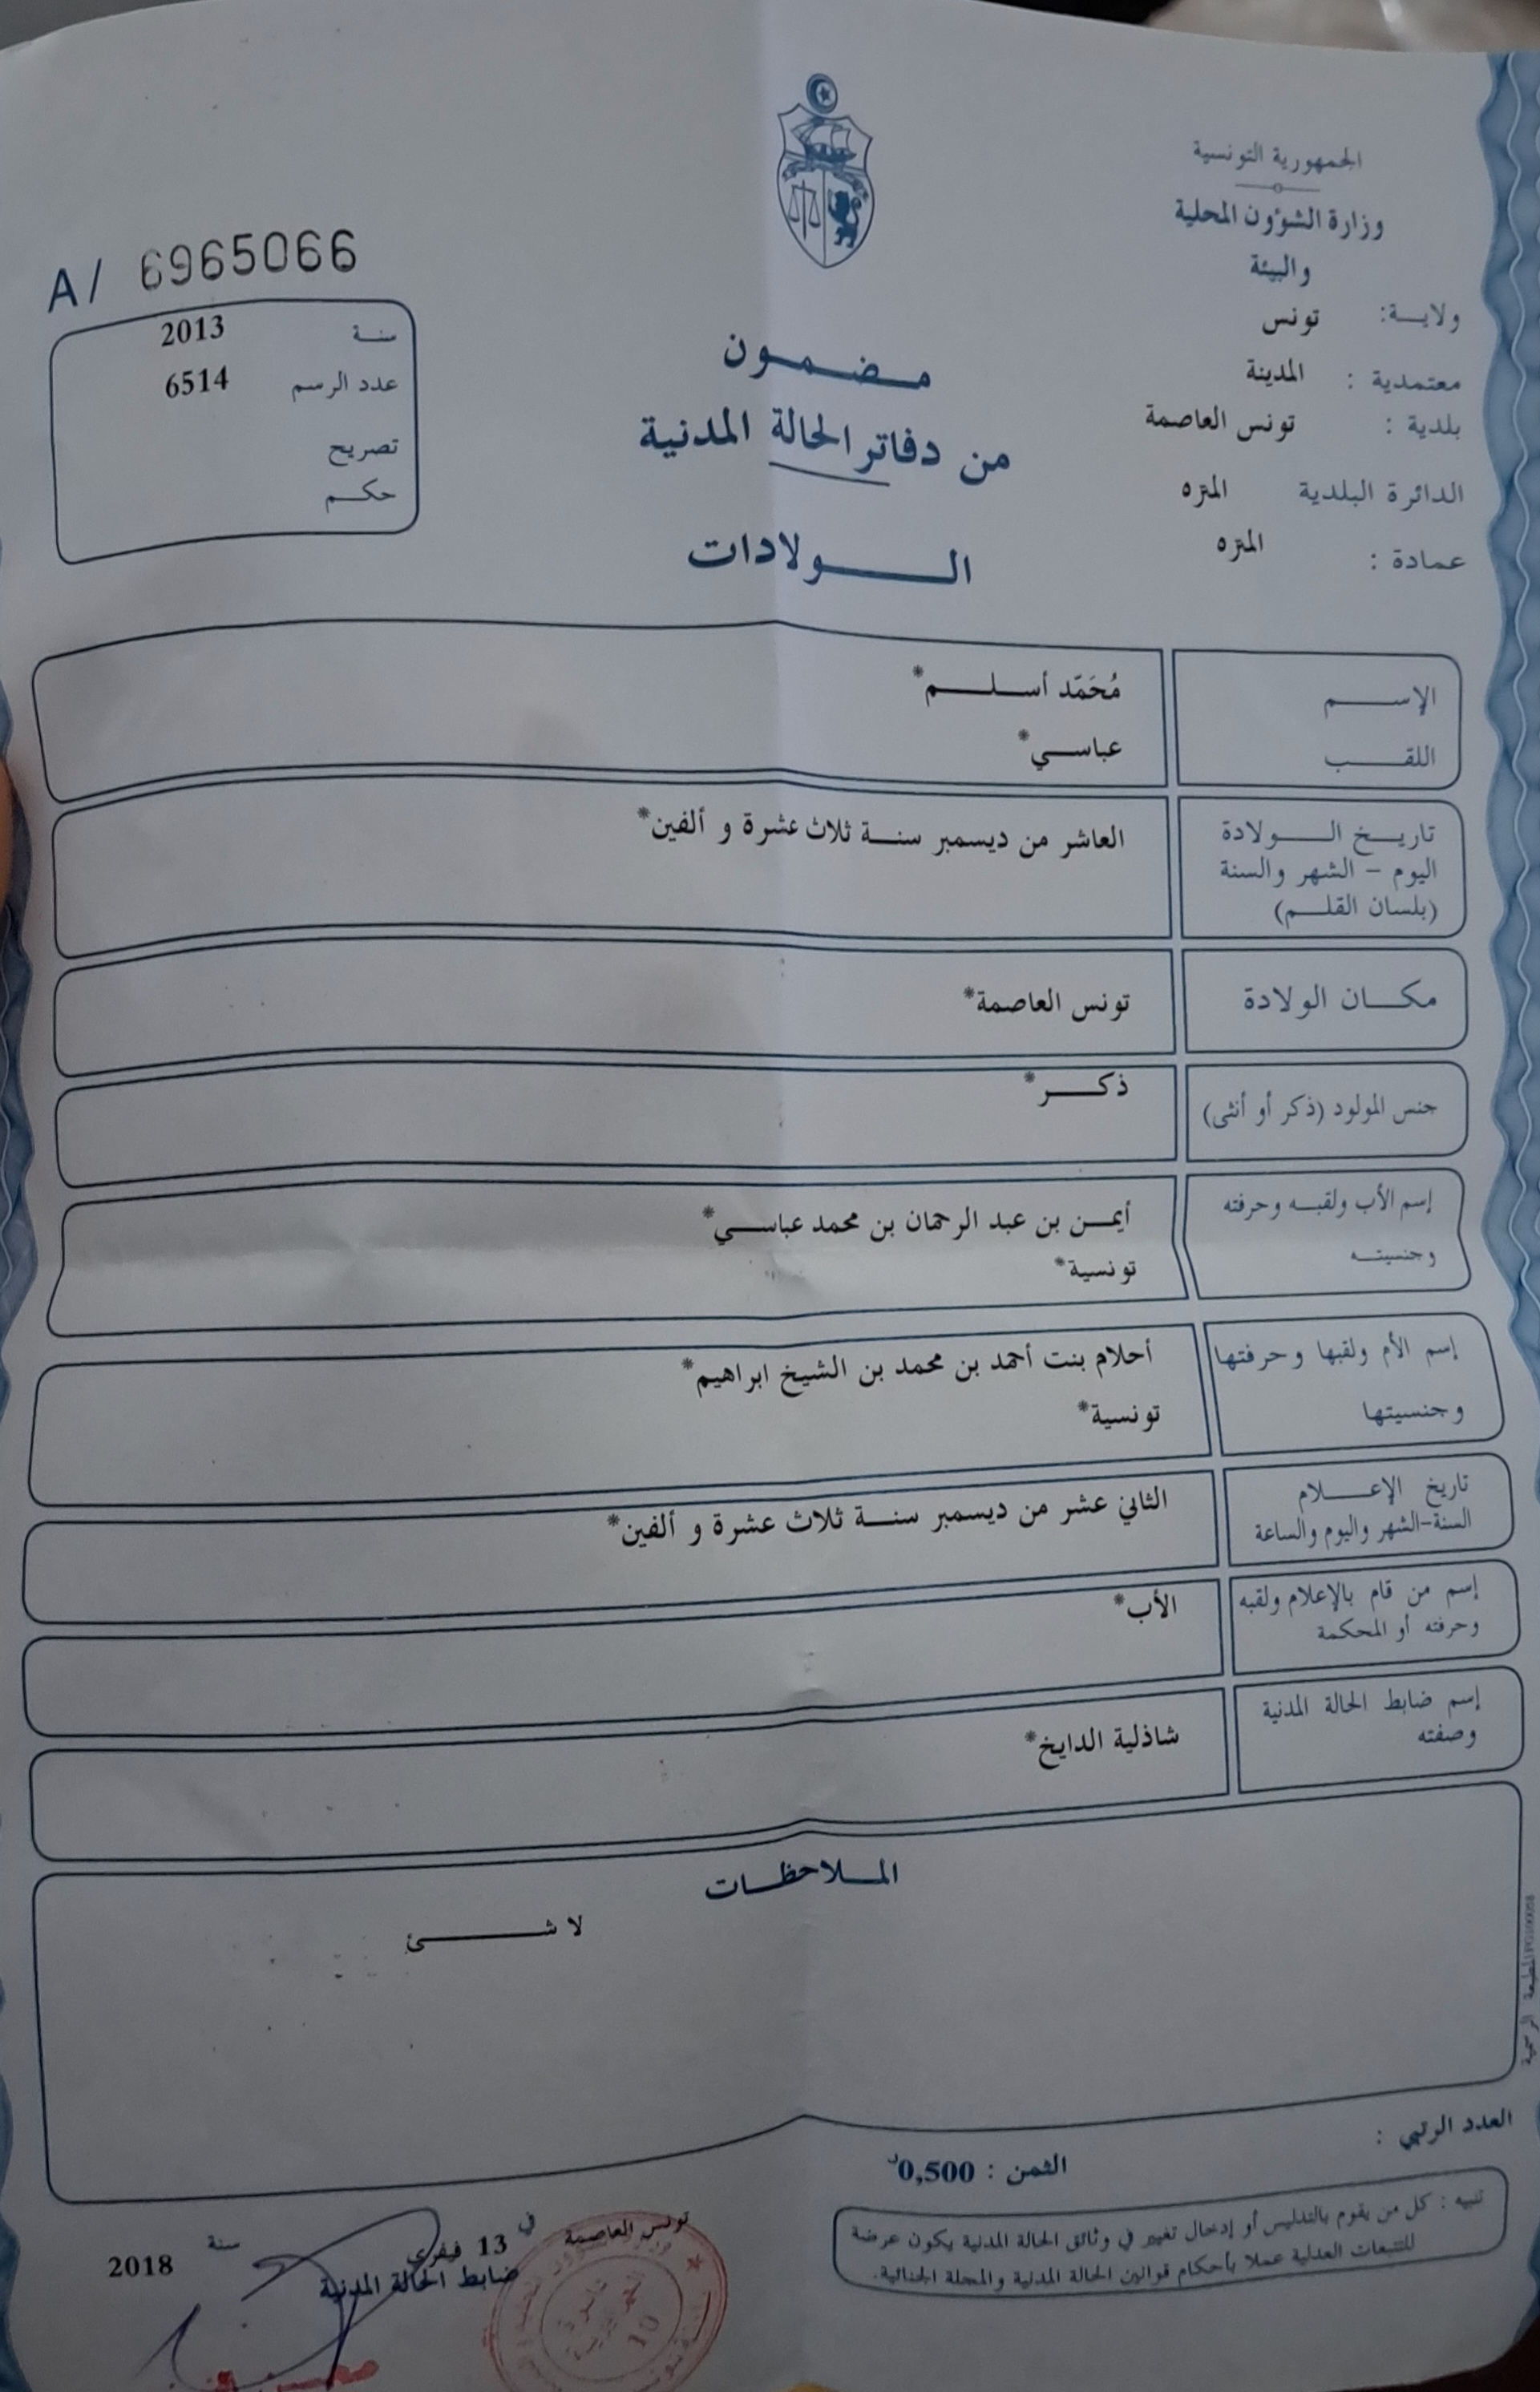 الجمهورية التونسية
وزارة الشؤون المحلية
والبيئة
ولاية: تونس
معتمدية : المدينة
بلدية : تونس العاصمة
الدائرة البلدية المتره
عمادة : المتره
A/ 6965066
سنة 2013
عدد الرسم 6514
تصريح
حكم
مضمون
من دفاتر الحالة المدنية
الولادات
الإسم مُحَمّد أسلم*
اللقب عباسي*
تاريخ الولادة العاشر من ديسمبر سنة ثلاث عشرة و ألفين*
اليوم - الشهر والسنة
(بلسان القلم)
مكان الولادة تونس العاصمة*
جنس المولود (ذكر أو أنثى) ذكر*
إسم الأب ولقبه وحرفته أيمن بن عبد الرحمان بن محمد عباسي*
وجنسيته تونسية*
إسم الأم ولقبها وحرفتها أحلام بنت أحمد بن محمد بن الشيخ ابراهيم*
وجنسيتها تونسية*
تاريخ الإعلام الثاني عشر من ديسمبر سنة ثلاث عشرة و ألفين*
السنة-الشهر واليوم والساعة
إسم من قام بالإعلام ولقبه الأب*
وحرفته أو المحكمة
إسم ضابط الحالة المدنية شاذلية الدايخ*
وصفته
الملاحظات
لا شئ
العدد الرتبي :
الثمن : 0,500د
تنبيه : كل من يقوم بالتدليس أو إدخال تغيير في وثائق الحالة المدنية يكون عرضة
للتتبعات العدلية عملا بأحكام قوانين الحالة المدنية والمجلة الجنائية.
تونس العاصمة في 13 فيفري سنة 2018
ضابط الحالة المدنية
10
المطبعة الرسمية